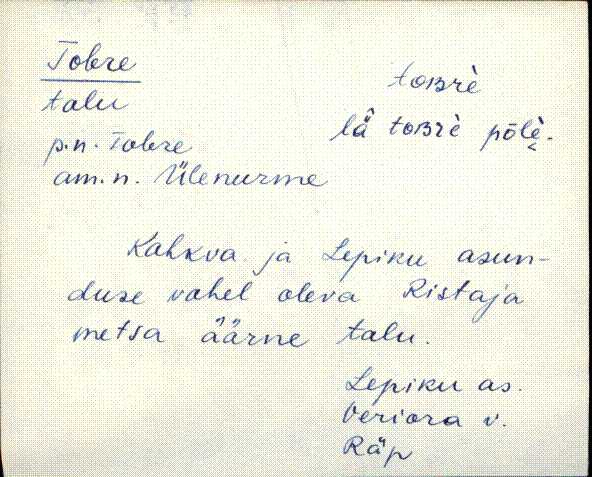 Tobre
talu
p.n. Tobre
am.n. Ülenurme
toʙrè
lä̆ toʙrè pōlè̬.
Kahkva ja Lepiku asun-
duse vahel oleva Ristaja
metsa äärne talu.
Lepiku as.
Veriora v.
Räp